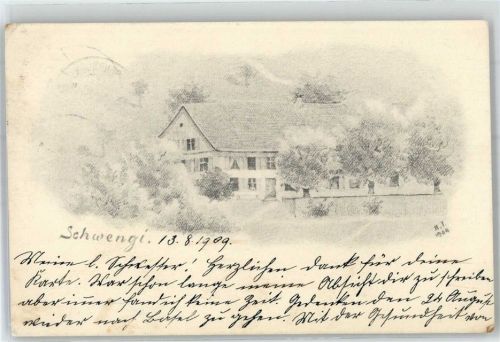 Schwengi. 13.8.1909.
Meine l. Schwester! Herzlichen Dank für deine
Karte. War schon lange meine Absicht dir zu schreiben
aber immer fand ich keine Zeit. Gedenken den 24 August
wieder nach Basel zu gehen. Mit der Gesundheit von